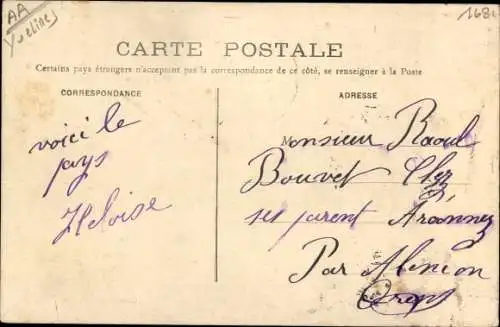 AA
Yvelines
168
CARTE POSTALE
Certains pays étrangers n'acceptant pas la correspondance de ce côté, se renseigner à la Poste
CORRESPONDANCE
ADRESSE
voici le
pays
Heloise
Monsieur Raoul
Bouvet Chez
ses parent
Par Alencon
Orne